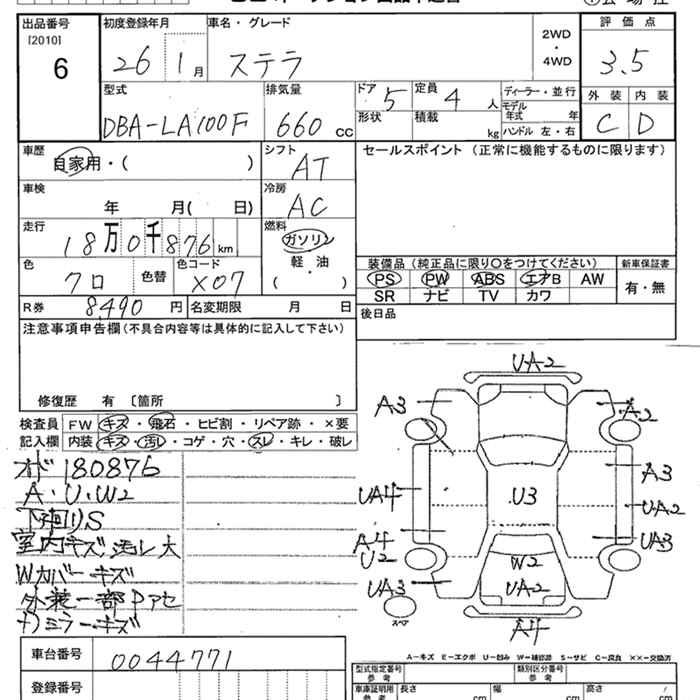 出品番号 初度登録年月 車名・グレード 評価点
[2010] 6 26年 1月 ステラ 2WD・4WD 3.5
外装 内装
C D
型式 排気量 ドア 5 定員 4人 ディーラー・並行
DBA-LA100F 660cc 形状 積載 kg モデル年式 年
ハンドル 左・右
車歴 シフト セールスポイント(正常に機能するものに限ります)
自家用・( ) AT
車検 冷房
年 月( 日) AC
走行 燃料
18万0千876km ガソリン
軽・油
( )
色 色替 色コード 装備品(純正品に限り○をつけてください) 新車保証書
クロ X07 PS PW ABS エアB AW 有・無
SR ナビ TV カワ
R券 8,490円 名変期限 月 日 後日品
注意事項申告欄(不具合内容等は具体的に記入して下さい)
修復歴 有 〔箇所 〕
検査員 FW キズ・飛石・ヒビ割・リペア跡・×要
記入欄 内装 キズ・汚レ・コゲ・穴・スレ・キレ・破レ
オド 180876
A・U・W2
下廻りS
室内キズ汚レ大
Wカバーキズ
外装一部Pアセ
ナカミラーキズ
UA2
A3 A2
A3
UA4 U3 UA2
A4 UA3
U2 W2
UA3 UA2
スペア A4
A-キズ E-エクボ U-凹み W-補修跡 S-サビ C-腐食 ××-交換済
車台番号 0044771 型式指定番号 参考 類別区分番号 参考
登録番号 車庫証明用 参考 長さ cm 幅 cm 高さ cm